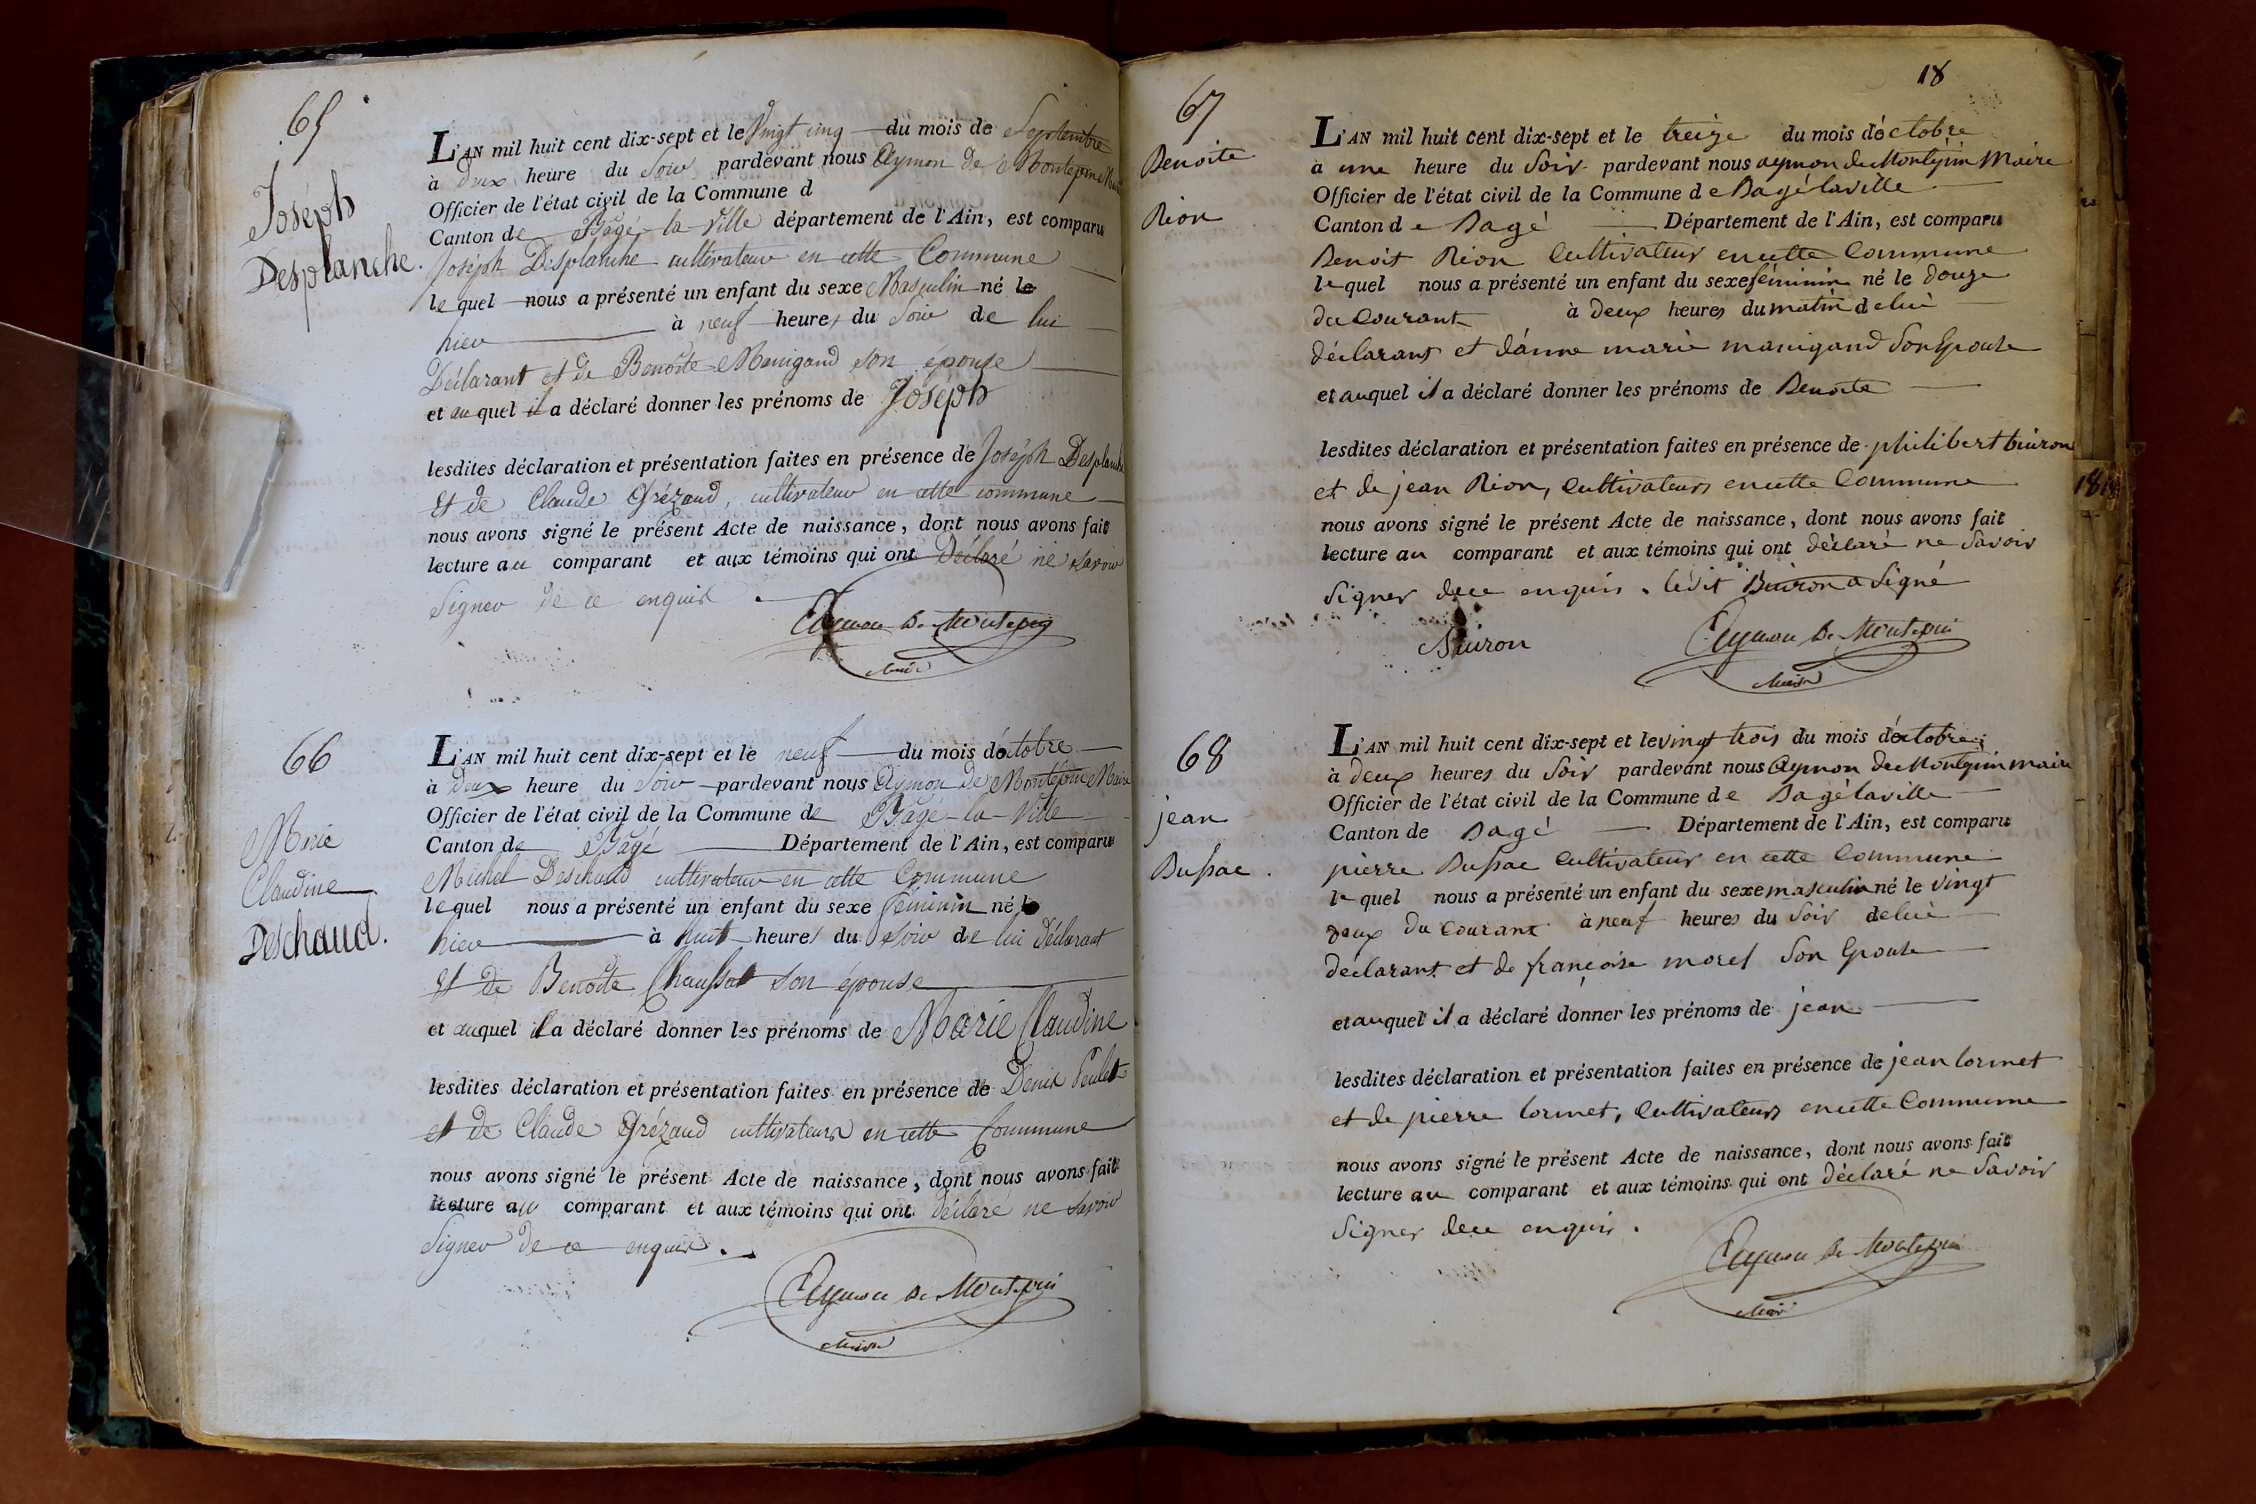 65
Joseph
Desplanche.
L'AN mil huit cent dix-sept et le Vingt cinq du mois de Septembre
à Deux heure du Soir pardevant nous Aymon de Montepin Maire
Officier de l'état civil de la Commune d
Canton de Bâgé-la-Ville département de l'Ain, est comparu
Joséph Desplanche cultivateur en cette Commune
lequel nous a présenté un enfant du sexe Masculin né le
hier à neuf heures du Soir de lui
Déclarant et de Benoîte Manigand son épouse
et auquel il a déclaré donner les prénoms de Joséph
lesdites déclaration et présentation faites en présence de Joséph Desplanche
Et de Claude Grézaud, cultivateur en cette commune
nous avons signé le présent Acte de naissance, dont nous avons fait
lecture au comparant et aux témoins qui ont Déclaré ne savoir
Signer de ce enquis.
Aymon De Montepin
Maire
66
Marie
Claudine
Deschaud.
L'AN mil huit cent dix-sept et le neuf du mois d'octobre
à Deux heure du Soir pardevant nous Aymon de Montepin Maire
Officier de l'état civil de la Commune de Bâgé-la-Ville
Canton de Bâgé Département de l'Ain, est comparu
Michel Deschaud cultivateur en cette Commune
lequel nous a présenté un enfant du sexe féminin né le
hier à huit heures du Soir de lui Déclarant
Et de Benoîte Chaussat son épouse
et auquel il a déclaré donner les prénoms de Marie Claudine
lesdites déclaration et présentation faites en présence de Denis Poulet
et de Claude Grézaud cultivateurs en cette Commune
nous avons signé le présent Acte de naissance, dont nous avons fait
lecture au comparant et aux témoins qui ont déclaré ne savoir
Signer de ce enquis.
Aymon De Montepin
Maire
18
67
Benoite
Rion
L'AN mil huit cent dix-sept et le treize du mois d'octobre
à une heure du Soir pardevant nous aymon de Montépin Maire
Officier de l'état civil de la Commune de Bagélaville
Canton de Bagé Département de l'Ain, est comparu
Benoit Rion Cultivateur en cette Commune
lequel nous a présenté un enfant du sexe féminin né le douze
du Courant à deux heures du matin de lui
déclarant et d'anne marie manigand Son Epouse
et auquel il a déclaré donner les prénoms de Benoite
lesdites déclaration et présentation faites en présence de philibert buiron
et de jean Rion, Cultivateurs en cette Commune
nous avons signé le présent Acte de naissance, dont nous avons fait
lecture au comparant et aux témoins qui ont déclaré ne Savoir
Signer de ce enquis. ledit Buiron a Signé
Buiron
Aymon De Montepin
Maire
68
jean
Bussac.
L'AN mil huit cent dix-sept et le vingt trois du mois d'octobre
à deux heures du Soir pardevant nous Aymon de Montépin maire
Officier de l'état civil de la Commune de Bagélaville
Canton de Bagé Département de l'Ain, est comparu
pierre Bussac Cultivateur en cette Commune
lequel nous a présenté un enfant du sexe masculin né le vingt
deux du Courant à neuf heures du Soir de lui
déclarant et de françoise morel Son Epouse
et auquel il a déclaré donner les prénoms de jean
lesdites déclaration et présentation faites en présence de jean lormet
et de pierre lormet, Cultivateurs en cette Commune
nous avons signé le présent Acte de naissance, dont nous avons fait
lecture au comparant et aux témoins qui ont déclaré ne Savoir
Signer de ce enquis.
Aymon De Montepin
Maire